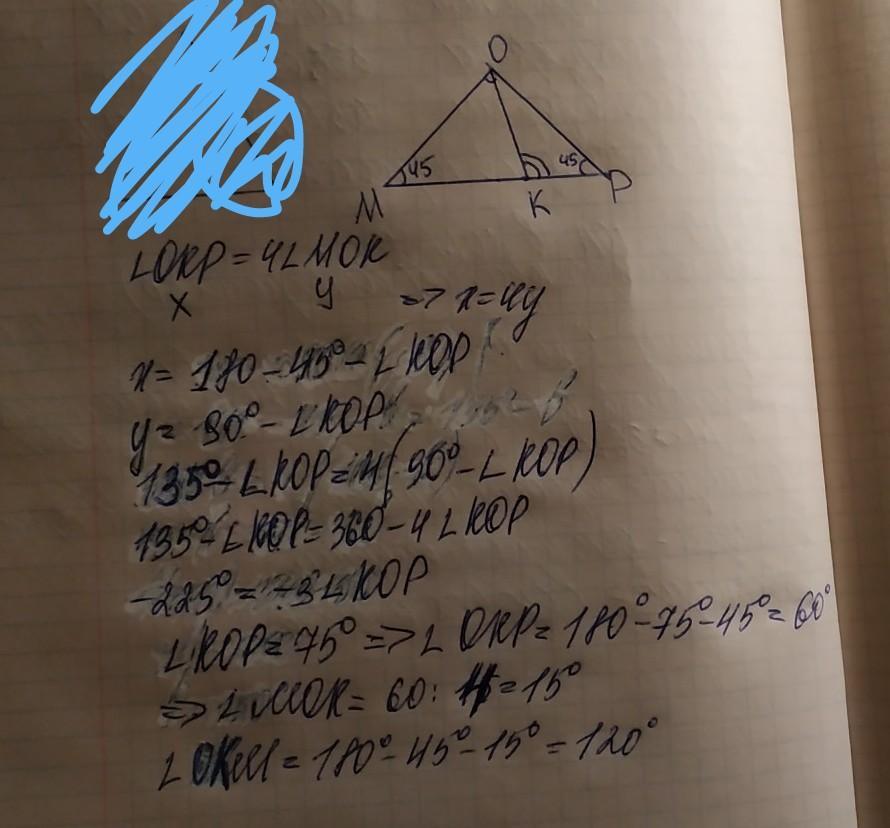 O
45
45
M
K
P
∠OKP = 4∠MOK
x y => x=4y
x = 180 - 45° - ∠KOP
y = 90° - ∠KOP
135° - ∠KOP = 4(90° - ∠KOP)
135° - ∠KOP = 360 - 4∠KOP
-225° = -3∠KOP
∠KOP = 75° => ∠OKP = 180° - 75° - 45° = 60°
=> ∠MOK = 60 : 4 = 15°
∠OKM = 180° - 45° - 15° = 120°